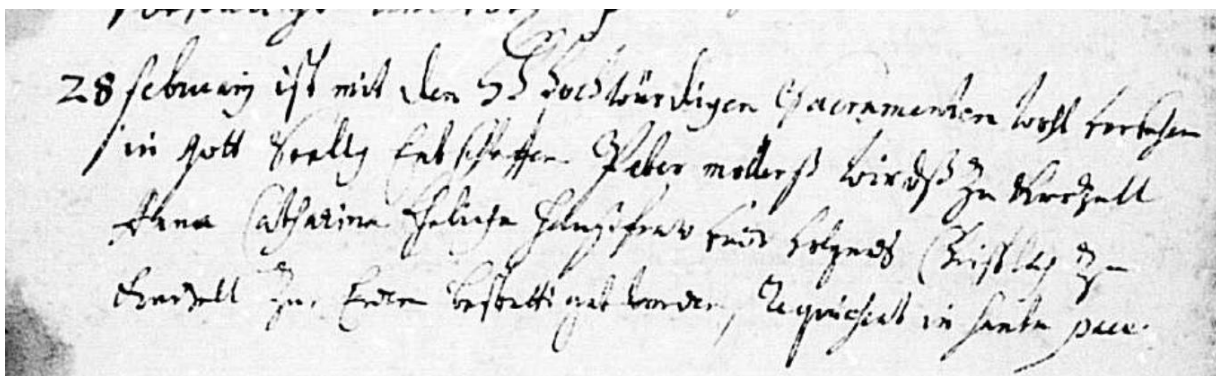 28 februarij ist mit den HH hochwürdigen Sacramenten wohl versehen
in Gott Seelig Entschlaffen Peter mollerß wirdß zu
Anna Catharina Eheliche Haußfraw undt folgends Christlich zu
zur Erden bestattiget worden, requiescat in sancta pace.